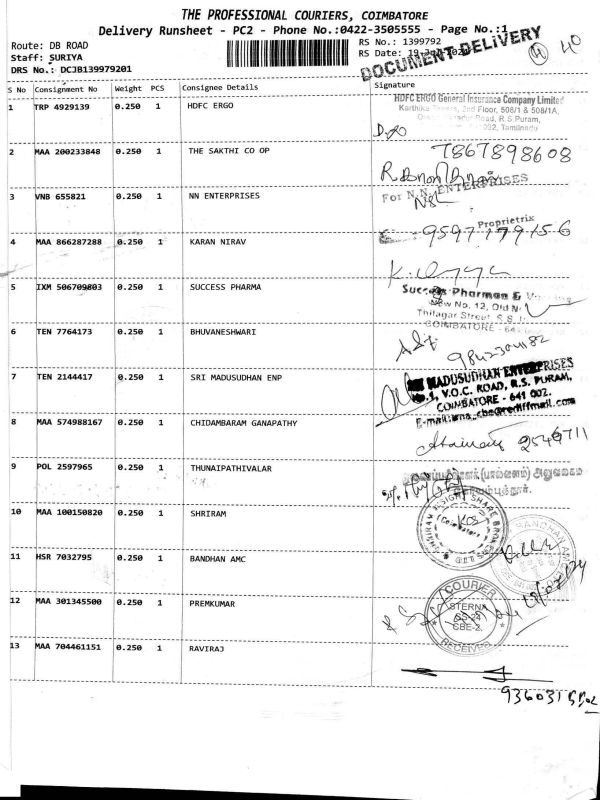 THE PROFESSIONAL COURIERS, COIMBATORE
Delivery Runsheet - PC2 - Phone No.:0422-3505555 - Page No.:1
Route: DB ROAD
Staff: SURIYA
DRS No.: DCJB139979201
RS No.: 1399792
RS Date: 19-Jul-2024
DOCUMENT DELIVERY
40
S No Consignment No Weight PCS Consignee Details Signature
1 TRP 4929139 0.250 1 HDFC ERGO
HDFC ERGO General Insurance Company Limited
2nd Floor, 508/1 & 508/1A,
Road, R.S.Puram,
Tamilnadu
2 MAA 200233848 0.250 1 THE SAKTHI CO OP
7867898608
3 VNB 655821 0.250 1 NN ENTERPRISES
For N.N. ENTERPRISES
Proprietrix
4 MAA 866287288 0.250 1 KARAN NIRAV
9597179156
5 IXM 506709803 0.250 1 SUCCESS PHARMA
Success Pharman &
New No. 12, Old N
Thilagar Street
COIMBATORE - 641
6 TEN 7764173 0.250 1 BHUVANESHWARI
7 TEN 2144417 0.250 1 SRI MADUSUDHAN ENP
MADUSUDHAN ENTERPRISES
No.1, V.O.C. ROAD, R.S. PURAM,
COIMBATORE - 641 002.
8 MAA 574988167 0.250 1 CHIDAMBARAM GANAPATHY
9 POL 2597965 0.250 1 THUNAIPATHIVALAR
10 MAA 100150820 0.250 1 SHRIRAM
SHRIRAM INSIGHT SHARE BROKERS LTD
Coimbatore
11 HSR 7032795 0.250 1 BANDHAN AMC
12 MAA 301345500 0.250 1 PREMKUMAR
COURIER
RECEIVED
13 MAA 704461151 0.250 1 RAVIRAJ